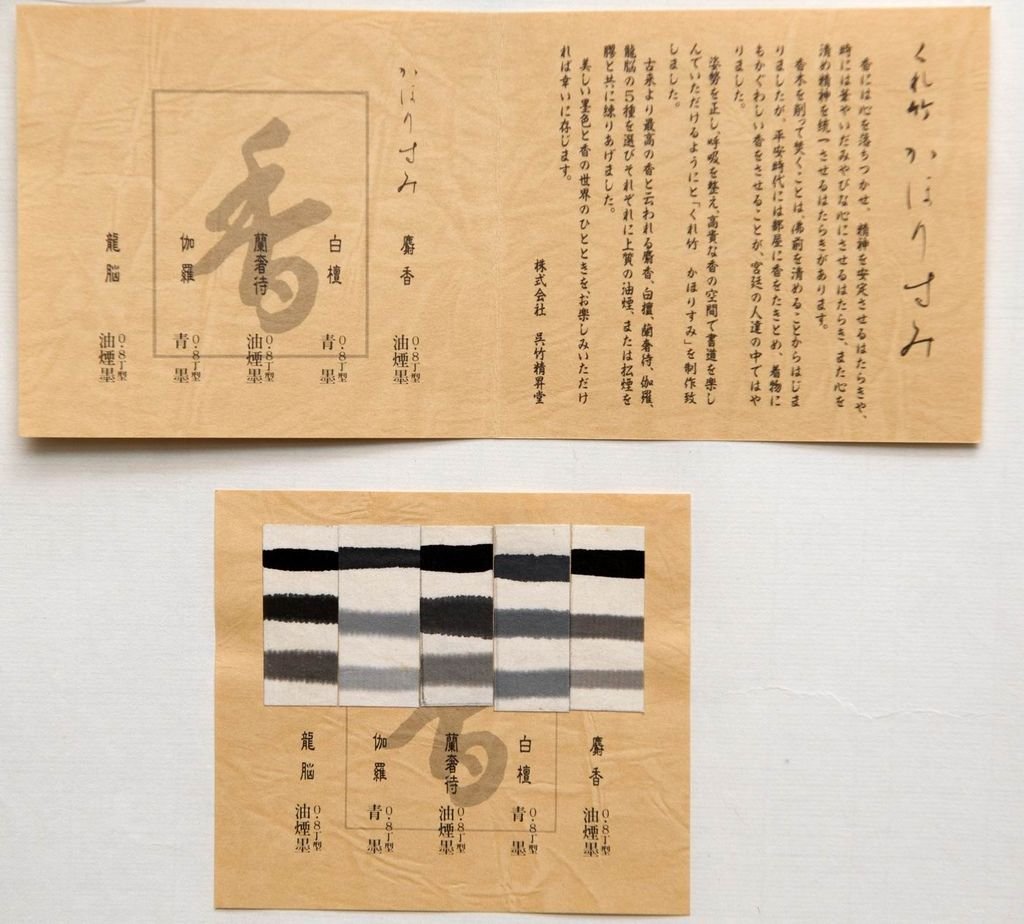 くれ竹 かほりすみ
香には心を落ちつかせ、精神を安定させるはたらきや、
時には華やいだみやびな心にさせるはたらき、また心を
清め精神を統一させるはたらきがあります。
香木を削って焚くことは、佛前を清めることからはじま
りましたが、平安時代には部屋に香をたきとめ、着物に
もかぐわしい香をさせることが、宮廷の人達の中ではや
りました。
姿勢を正し、呼吸を整え、高貴な香の空間で書道を楽し
んでいただけるようにと「くれ竹 かほりすみ」を制作致
しました。
古来より最高の香と云われる麝香、白檀、蘭奢待、伽羅、
龍脳の5種を選びそれぞれに上質の油煙、または松煙を
膠と共に練りあげました。
美しい墨色と香の世界のひとときを、お楽しみいただけ
れば幸いに存じます。
株式会社 呉竹精昇堂
かほりすみ
香
麝香 0.8丁型 油煙墨
白檀 0.8丁型 青墨
蘭奢待 0.8丁型 油煙墨
伽羅 0.8丁型 青墨
龍脳 0.8丁型 油煙墨
香
麝香 0.8丁型 油煙墨
白檀 0.8丁型 青墨
蘭奢待 0.8丁型 油煙墨
伽羅 0.8丁型 青墨
龍脳 0.8丁型 油煙墨